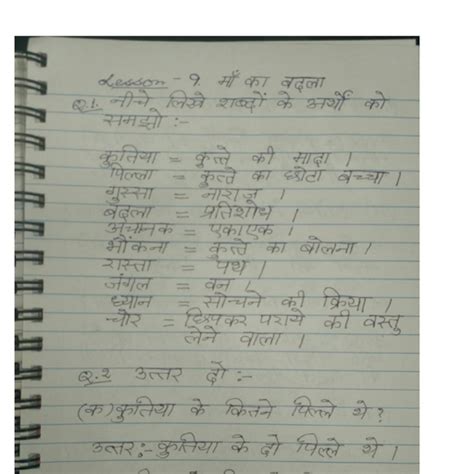 Lesson - 9. माँ का बदला
Q.1. नीचे लिखे शब्दों के अर्थों को
समझो :-
कुतिया = कुत्ते की मादा ।
पिल्ला = कुत्ते का छोटा बच्चा ।
गुस्सा = नाराज़ ।
बदला = प्रतिशोध ।
अचानक = एकाएक ।
भौंकना = कुत्ते का बोलना ।
रास्ता = पथ ।
जंगल = वन ।
ध्यान = सोचने की क्रिया ।
चोर = छिपकर पराये की वस्तु
लेने वाला ।
Q.2 उत्तर दो :-
(क) कुतिया के कितने पिल्ले थे ?
उत्तर:- कुतिया के दो पिल्ले थे ।